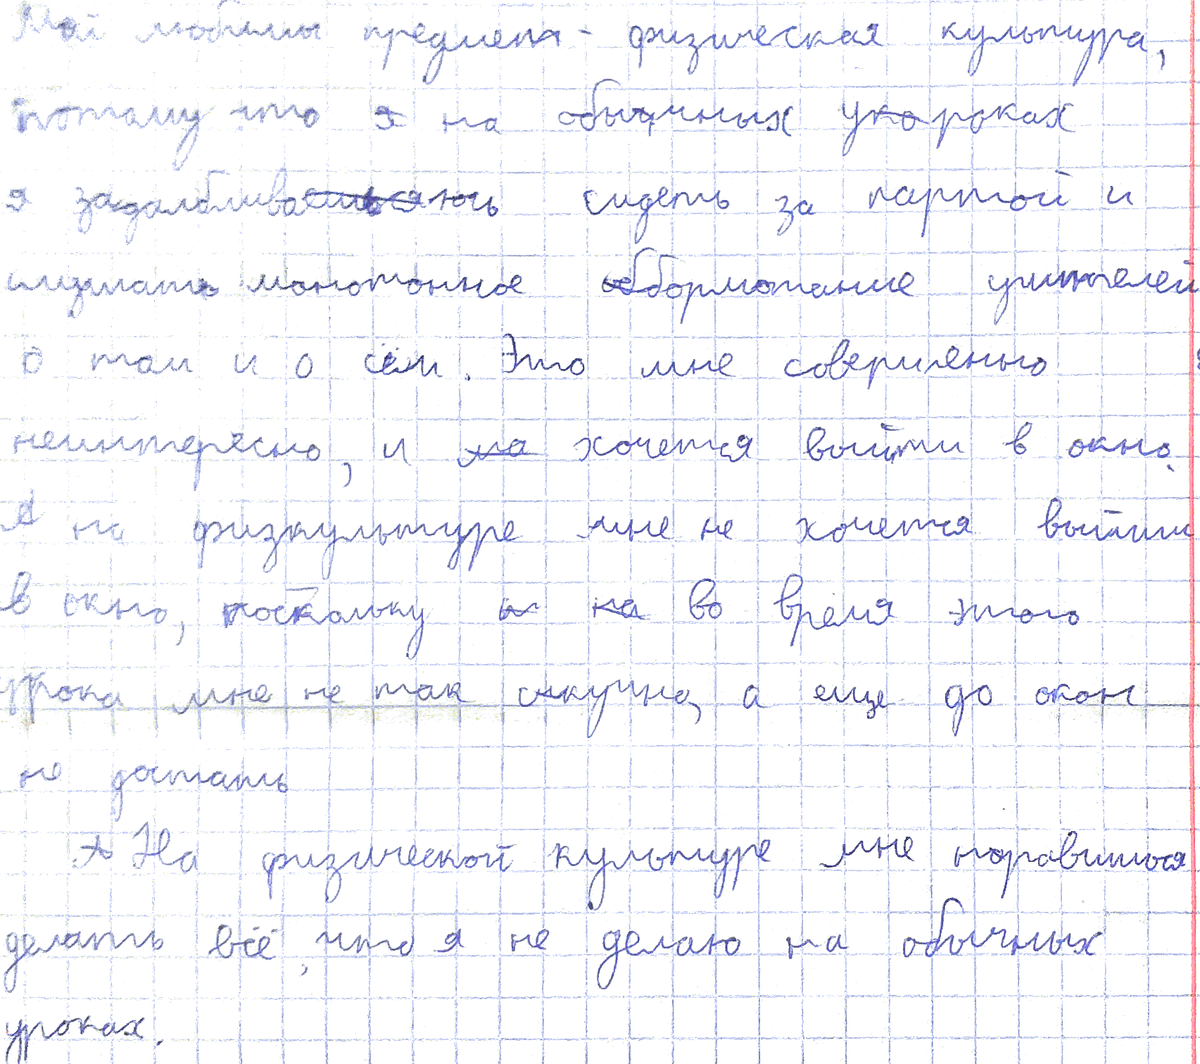 Мой любимы предмет - физическая культура,
потому что я на обычных укороках
я задалбливаюсь сидеть за партой и
слушать монотонное бормотание учителей
о том и о сём. Это мне совершенно
неинтересно, и на хочется выйти в окно.
А на физкультуре мне не хочется выйти
в окно, поскольку и на во время этого
урока мне не так скучно, а еще до окон
не достать
А На физической культуре мне норавиться
делать всё, что я не делаю на обычных
уроках.